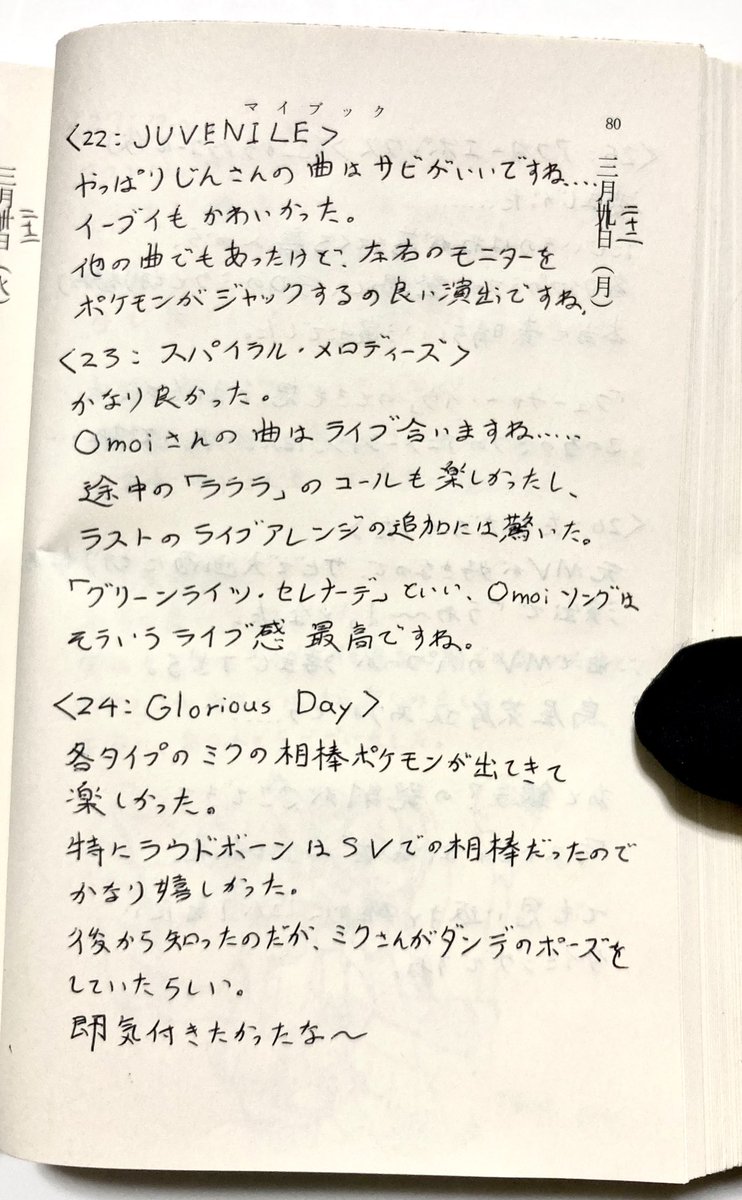 マイブック
80
三月
二十二
日(月)
<22: JUVENILE>
やっぱりじんさんの曲はサビがいいですね....
イーブイもかわいかった。
他の曲でもあったけど、左右のモニターを
ポケモンがジャックするの良い演出ですね。
<23: スパイラル・メロディーズ>
かなり良かった。
Omoiさんの曲はライブ合いますね.....
途中の「ラララ」のコールも楽しかったし、
ラストのライブアレンジの追加には驚いた。
「グリーンライツ・セレナーデ」といい、Omoiソングは
そういうライブ感最高ですね。
<24: Glorious Day>
各タイプのミクの相棒ポケモンが出てきて
楽しかった。
特にラウドボーンはSVでの相棒だったので
かなり嬉しかった。
後から知ったのだが、ミクさんがダンデのポーズを
していたらしい。
即気付きたかったな〜